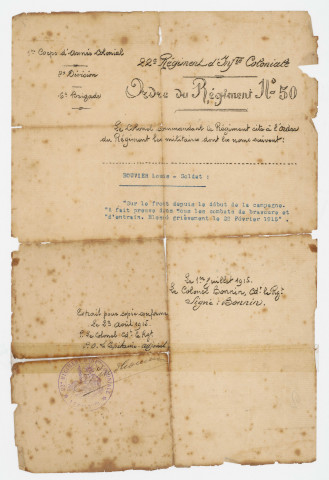 1er Corps d'Armée Colonial
22e Régiment d'Infie Coloniale
2e Division
Brigade
Ordre du Régiment No 50
Le Colonel Commandant le Régiment cite à l'Ordre
du Régiment les militaires dont les noms suivent :
BOUVIER Louis - Soldat :
"Sur le front depuis le début de la campagne.
"A fait preuve dans tous les combats de bravoure et
d'entrain. Blessé grièvement le 21 Février 1915".
Le 1er Juillet 1915.
Le Colonel Bonnin, Cdt le Régt
Signé : Bonnin.
Extrait pour copie conforme
le 23 avril 1916.
P. le Colonel Cdt le Rgt
P.O. le Capitaine adjoint